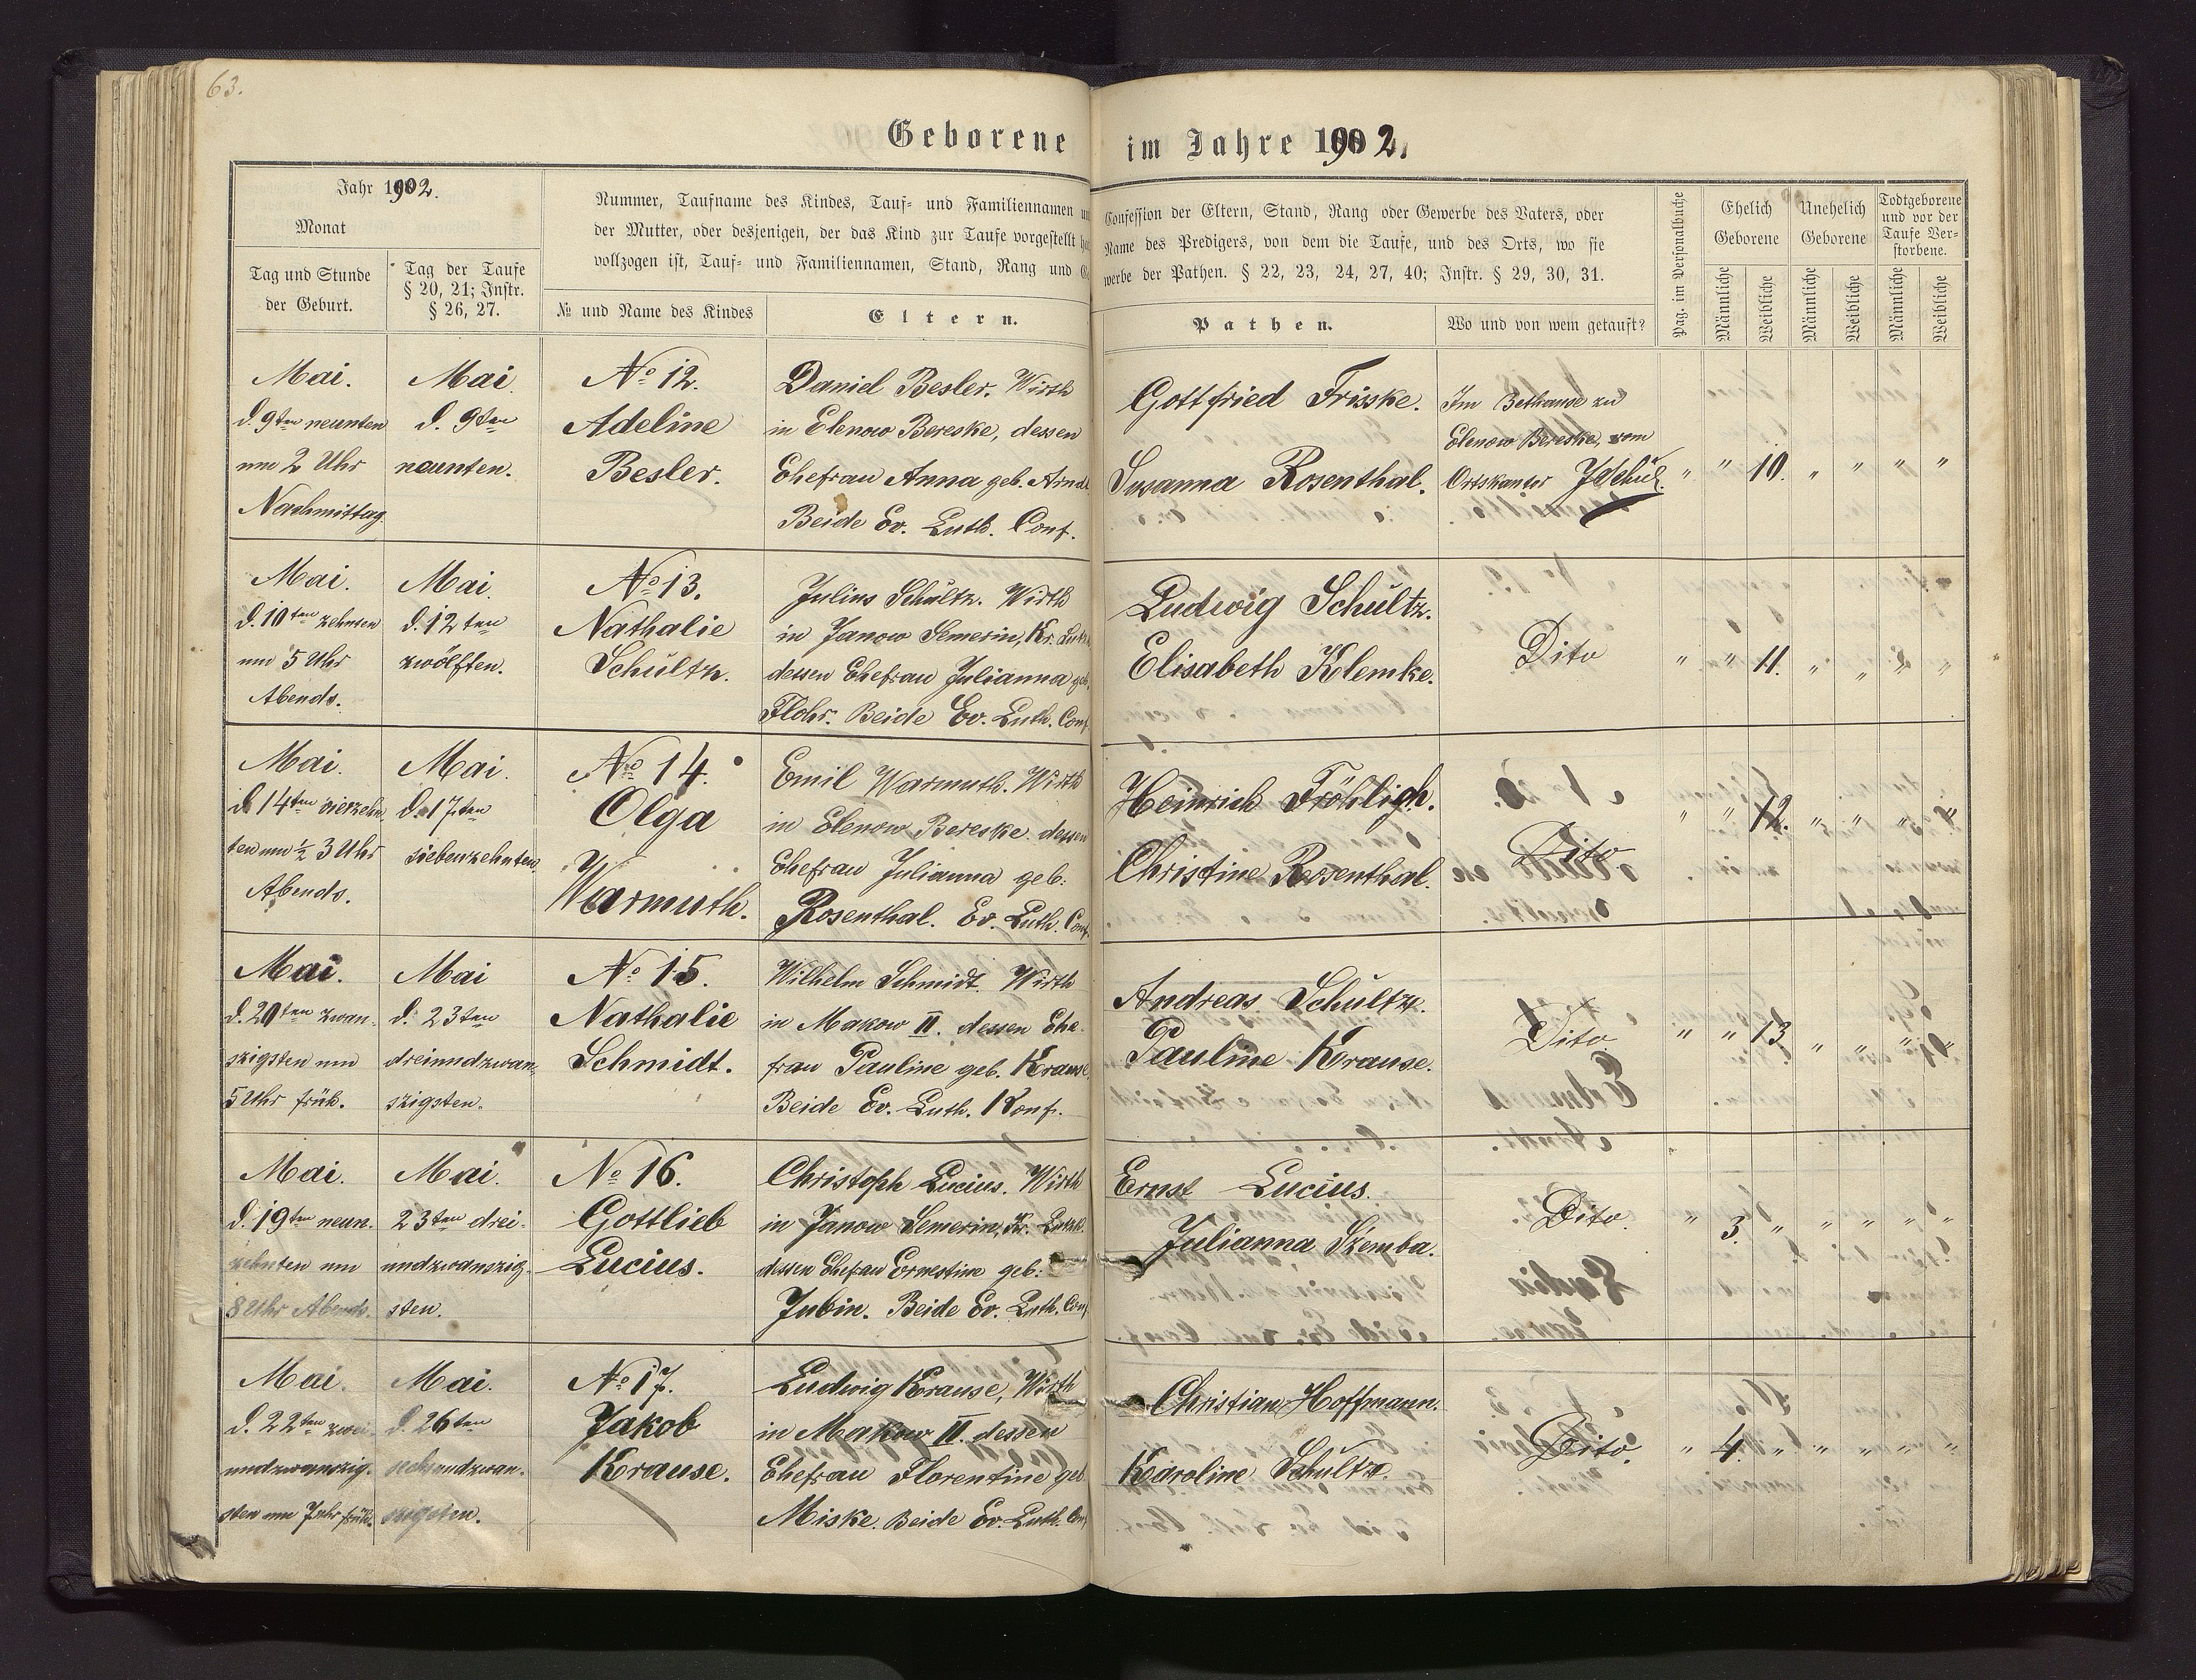 63.
Geborene im Jahre 1902.
Jahr 1902.
Monat
Tag und Stunde
der Geburt.
Tag der Taufe
§ 20, 21; Instr.
§ 26, 27.
Nummer, Taufname des Kindes, Tauf- und Familiennamen
der Mutter, oder desjenigen, der das Kind zur Taufe vorgestellt
vollzogen ist, Tauf- und Familiennamen, Stand, Rang und
№ und Name des Kindes
Eltern.
Confession der Eltern, Stand, Rang oder Gewerbe des Vaters, oder
Name des Predigers, von dem die Taufe, und des Orts, wo sie
werbe der Pathen. § 22, 23, 24, 27, 40; Instr. § 29, 30, 31.
Pathen.
Wo und von wem getauft?
Pag. im Personalbuche
Ehelich
Geborene
Unehelich
Geborene
Todtgeborene
und vor der
Taufe Ver-
storbene.
Männliche
Weibliche
Männliche
Weibliche
Männliche
Weibliche
Mai.
d. 9ten neunten
um 2 Uhr
Nachmittag
Mai
d. 9ten
neunten.
No 12.
Adeline
Besler.
Daniel Besler. Wirth
in Elenow Bereske, dessen
Ehefrau Anna geb. Arndt
Beide Ev. Luth. Conf.
Gottfried Frisske.
Susanna Rosenthal.
Im Bethause zu
Elenow Bereske, vom
Ortskantor
" " 10. " " " "
Mai.
d. 10ten zehnten
um 5 Uhr
Abends.
Mai.
d. 12ten
zwölften.
No 13.
Nathalie
Schültz.
Julius Schültz. Wirth
in Janow Semerin, Kr. Lutzk
dessen Ehefrau Julianna geb.
Flohr. Beide Ev. Luth. Conf
Ludwig Schültz.
Elisabeth Klemke.
Dito
" " 11. " " " "
Mai.
d. 14ten vierzehn
ten um ½ 3 Uhr
Abends.
Mai.
d. 17ten
siebenzehnten.
No 14.
Olga
Warmuth.
Emil Warmuth. Wirth
in Elenow Bereske. dessen
Ehefrau Julianna geb:
Rosenthal. Ev. Luth. Conf.
Heinrich Fröhligh.
Christine Rosenthal.
Dito
" " 12. " " " "
Mai.
d. 20ten zwan-
szigsten um
5 Uhr früh.
Mai
d. 23ten
dreiundzwan-
szigsten.
No 15.
Nathalie
Schmidt.
Wilhelm Schmidt. Wirth
in Makow II. dessen Ehe-
frau Pauline geb. Krause
Beide Ev. Luth. Konf.
Andreas Schultz.
Pauline Krause.
Dito.
" " 13 " " " "
Mai.
d. 19ten neun-
zehnten um
8 Uhr Abends.
Mai.
23ten drei-
undzwanszig-
sten.
No 16.
Gottlieb
Lucius.
Christoph Lucius. Wirth
in Janow Semerin, Kr. Lutzk.
dessen Ehefrau Ernestine geb:
Jubin. Beide Ev. Luth. Conf
Ernst Lucius.
Julianna Szemba.
Dito.
" 3. " " " " "
Mai.
d. 22ten zwei-
undzwanszig-
sten um 7 Uhr früh.
Mai.
d. 26ten
sechsundzwan-
szigsten.
No 17.
Jakob
Krause.
Ludwig Krause, Wirth
in Makow II. dessen
Ehefrau Florentine geb
Miske. Beide Ev. Luth. Conf
Christian Hoffmann.
Karoline Schultz.
Dito.
" 4. " " " " "